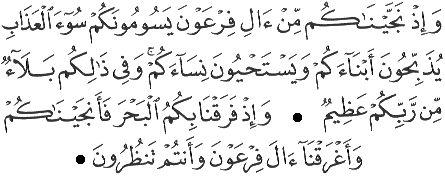 وَإِذْ نَجَّيْنَـٰكُم مِّنْ ءَالِ فِرْعَوْنَ يَسُومُونَكُمْ سُوٓءَ ٱلْعَذَابِ
يُذَبِّحُونَ أَبْنَآءَكُمْ وَيَسْتَحْيُونَ نِسَآءَكُمْ ۚ وَفِى ذَٰلِكُم بَلَآءٌ
مِّن رَّبِّكُمْ عَظِيمٌ • وَإِذْ فَرَقْنَا بِكُمُ ٱلْبَحْرَ فَأَنجَيْنَـٰكُمْ
وَأَغْرَقْنَآ ءَالَ فِرْعَوْنَ وَأَنتُمْ تَنظُرُونَ •